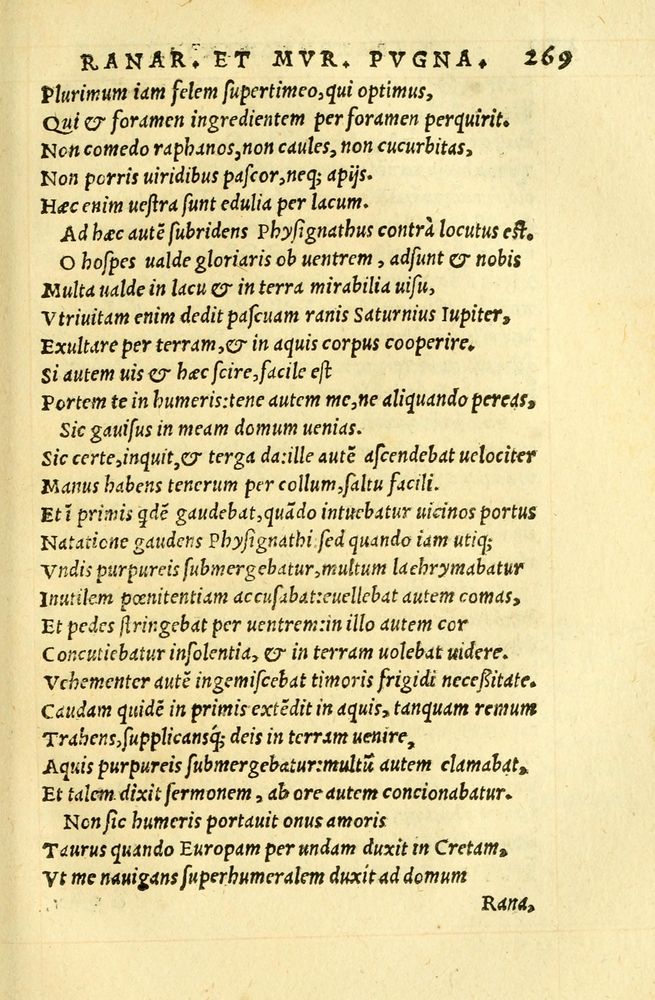 RANAR. ET MVR. PVGNA. 269
Plurimum iam felem supertimeo, qui optimus,
Qui & foramen ingredientem per foramen perquirit.
Non comedo raphanos, non caules, non cucurbitas,
Non porris uiridibus pascor, neq; apijs.
Hæc enim uestra sunt edulia per lacum.
Ad hæc autē subridens Physignathus contrà locutus est.
O hospes ualde gloriaris ob uentrem, adsunt & nobis
Multa ualde in lacu & in terra mirabilia uisu,
Vtriuitam enim dedit pascuam ranis Saturnius Iupiter,
Exultare per terram, & in aquis corpus cooperire.
Si autem uis & hæc scire, facile est
Portem te in humeris: tene autem me, ne aliquando pereas,
Sic gauisus in meam domum uenias.
Sic certe, inquit, & terga da: ille autē ascendebat uelociter
Manus habens tenerum per collum, saltu facili.
Et ī primis qdē gaudebat, quādo intuebatur uicinos portus
Natatione gaudens Physignathi sed quando iam utiq;
Vndis purpureis submergebatur, multum lachrymabatur
Inutilem pœnitentiam accusabat: euellebat autem comas,
Et pedes stringebat per uentrem: in illo autem cor
Concutiebatur insolentia, & in terram uolebat uidere.
Vehementer autē ingemiscebat timoris frigidi necessitate.
Caudam quidē in primis extēdit in aquis, tanquam remum
Trahens, supplicansq; deis in terram uenire,
Aquis purpureis submergebatur: multū autem clamabat,
Et talem dixit sermonem, ab ore autem concionabatur.
Non sic humeris portauit onus amoris
Taurus quando Europam per undam duxit in Cretam,
Vt me nauigans superhumeralem duxit ad domum
Rana,